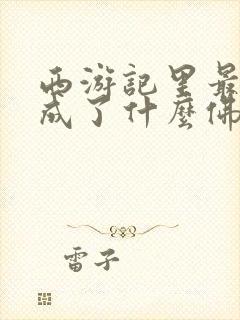 西游記里最
成了什麼佛
雷子